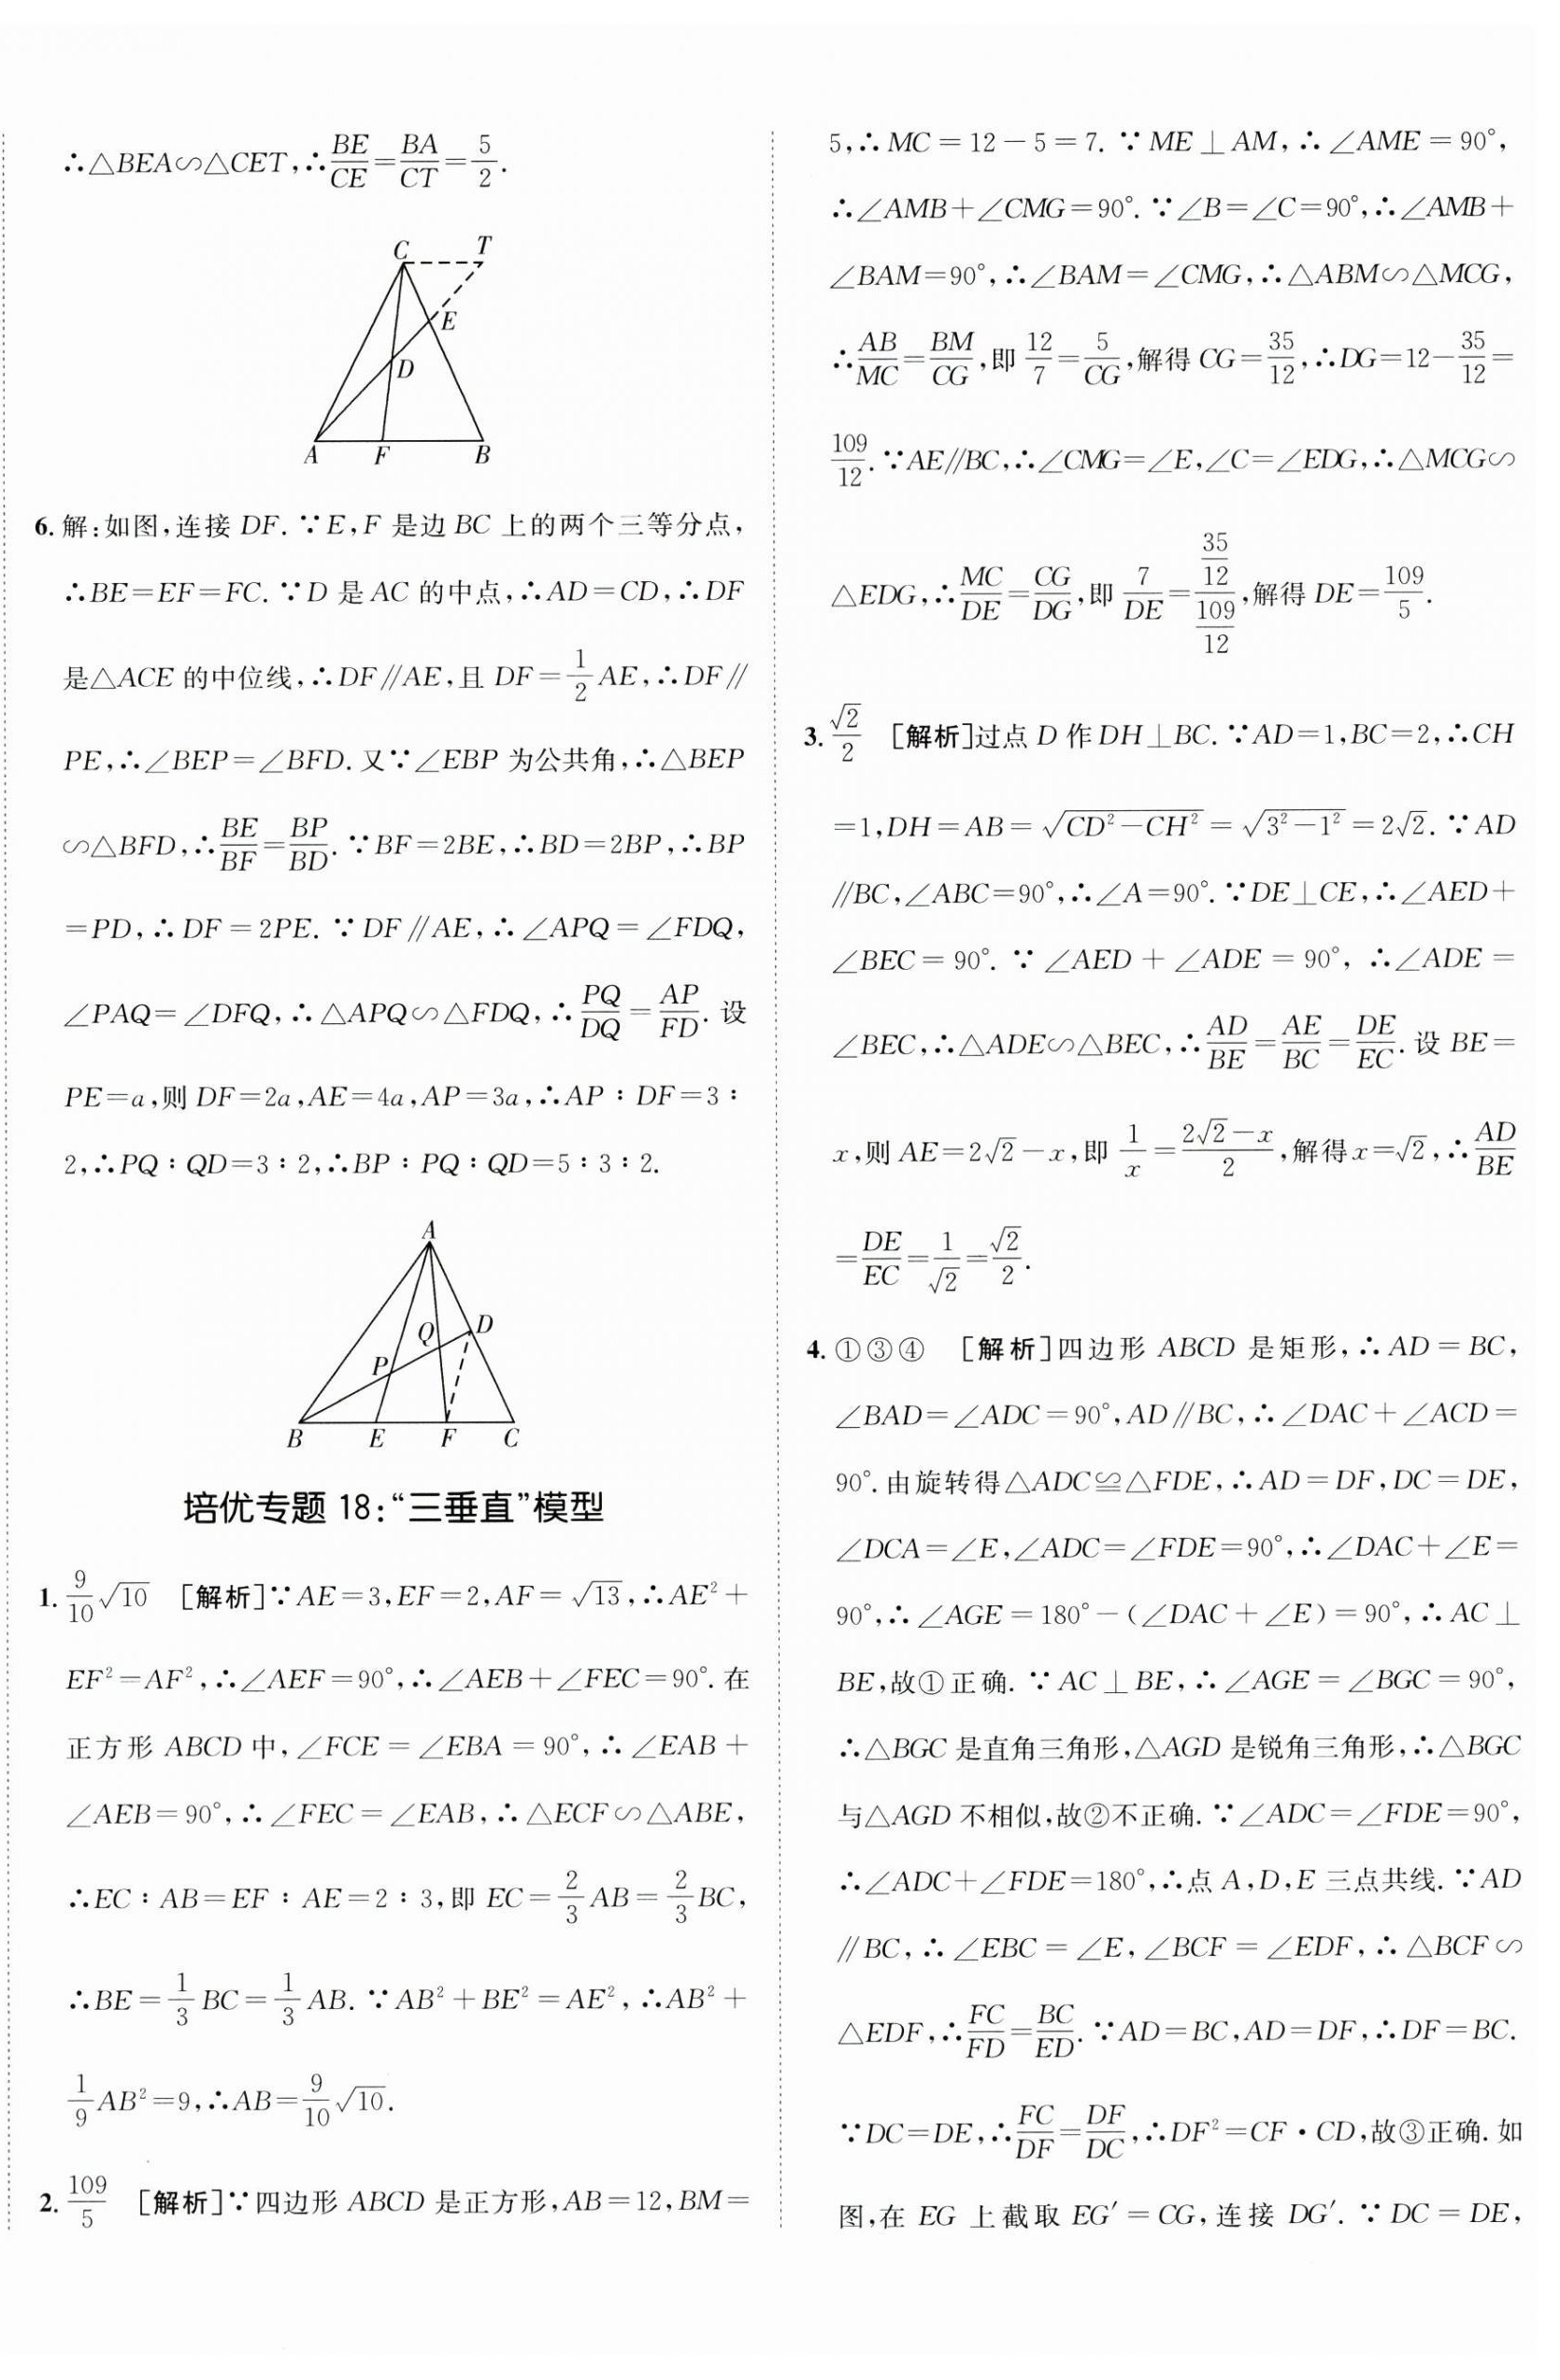 ∴△BEA∽△CET,∴BE/CE=BA/CT=5/2.
C T
E
D
A F B
6. 解:如图,连接 DF. ∵E,F 是边 BC 上的两个三等分点,
∴BE=EF=FC. ∵D 是 AC 的中点,∴AD=CD,∴DF
是△ACE 的中位线,∴DF∥AE,且 DF=1/2 AE,∴DF∥
PE,∴∠BEP=∠BFD. 又∵∠EBP 为公共角,∴△BEP
∽△BFD,∴BE/BF=BP/BD. ∵BF=2BE,∴BD=2BP,∴BP
=PD,∴DF=2PE. ∵DF∥AE,∴∠APQ=∠FDQ,
∠PAQ=∠DFQ,∴△APQ∽△FDQ,∴PQ/DQ=AP/FD. 设
PE=a,则 DF=2a,AE=4a,AP=3a,∴AP:DF=3:
2,∴PQ:QD=3:2,∴BP:PQ:QD=5:3:2.
A
Q D
P
B E F C
培优专题 18:“三垂直”模型
1. 9/10√10 [解析]∵AE=3,EF=2,AF=√13,∴AE²+
EF²=AF²,∴∠AEF=90°,∴∠AEB+∠FEC=90°. 在
正方形 ABCD 中,∠FCE=∠EBA=90°,∴∠EAB+
∠AEB=90°,∴∠FEC=∠EAB,∴△ECF∽△ABE,
∴EC:AB=EF:AE=2:3,即 EC=2/3 AB=2/3 BC,
∴BE=1/3 BC=1/3 AB. ∵AB²+BE²=AE²,∴AB²+
1/9 AB²=9,∴AB=9/10√10.
2. 109/5 [解析]∵四边形 ABCD 是正方形,AB=12,BM=
5,∴MC=12-5=7. ∵ME⊥AM,∴∠AME=90°,
∴∠AMB+∠CMG=90°. ∵∠B=∠C=90°,∴∠AMB+
∠BAM=90°,∴∠BAM=∠CMG,∴△ABM∽△MCG,
∴AB/MC=BM/CG,即 12/7=5/CG,解得 CG=35/12,∴DG=12-35/12=
109/12. ∵AE∥BC,∴∠CMG=∠E,∠C=∠EDG,∴△MCG∽
△EDG,∴MC/DE=CG/DG,即 7/DE=(35/12)/(109/12),解得 DE=109/5.
3. √2/2 [解析]过点 D 作 DH⊥BC. ∵AD=1,BC=2,∴CH
=1,DH=AB=√(CD²-CH²)=√(3²-1²)=2√2. ∵AD
∥BC,∠ABC=90°,∴∠A=90°. ∵DE⊥CE,∴∠AED+
∠BEC=90°. ∵∠AED+∠ADE=90°,∴∠ADE=
∠BEC,∴△ADE∽△BEC,∴AD/BE=AE/BC=DE/EC. 设 BE=
x,则 AE=2√2-x,即 1/x=(2√2-x)/2,解得x=√2,∴AD/BE
=DE/EC=1/√2=√2/2.
4. ①③④ [解析]四边形 ABCD 是矩形,∴AD=BC,
∠BAD=∠ADC=90°,AD∥BC,∴∠DAC+∠ACD=
90°. 由旋转得△ADC≌△FDE,∴AD=DF,DC=DE,
∠DCA=∠E,∠ADC=∠FDE=90°,∴∠DAC+∠E=
90°,∴∠AGE=180°-(∠DAC+∠E)=90°,∴AC⊥
BE,故①正确. ∵AC⊥BE,∴∠AGE=∠BGC=90°,
∴△BGC 是直角三角形,△AGD 是锐角三角形,∴△BGC
与△AGD 不相似,故②不正确. ∵∠ADC=∠FDE=90°,
∴∠ADC+∠FDE=180°,∴点 A,D,E 三点共线. ∵AD
∥BC,∴∠EBC=∠E,∠BCF=∠EDF,∴△BCF∽
△EDF,∴FC/FD=BC/ED. ∵AD=BC,AD=DF,∴DF=BC.
∵DC=DE,∴FC/DF=DF/DC,∴DF²=CF·CD,故③正确. 如
图,在 EG 上截取 EG′=CG,连接 DG′. ∵DC=DE,